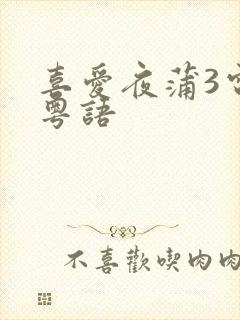 喜愛夜蒲3
粵語
不喜歡喫肉肉